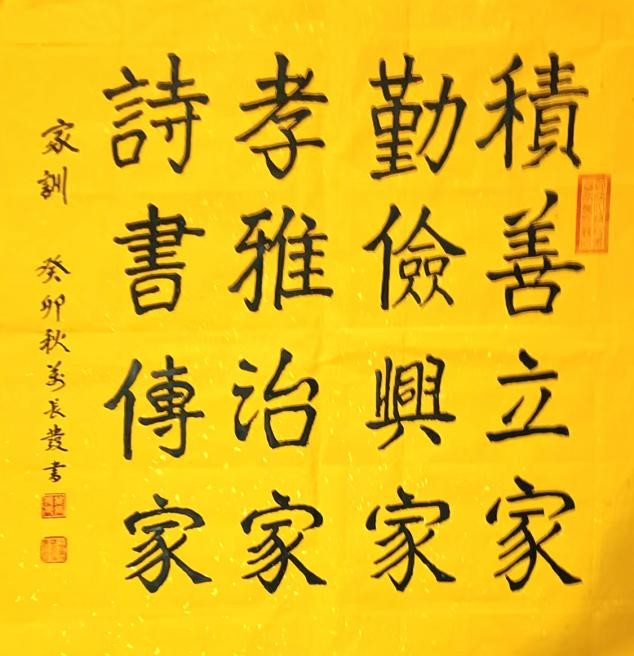 積善立家
勤儉興家
孝雅治家
詩書傳家
家訓 癸卯秋萬長發書